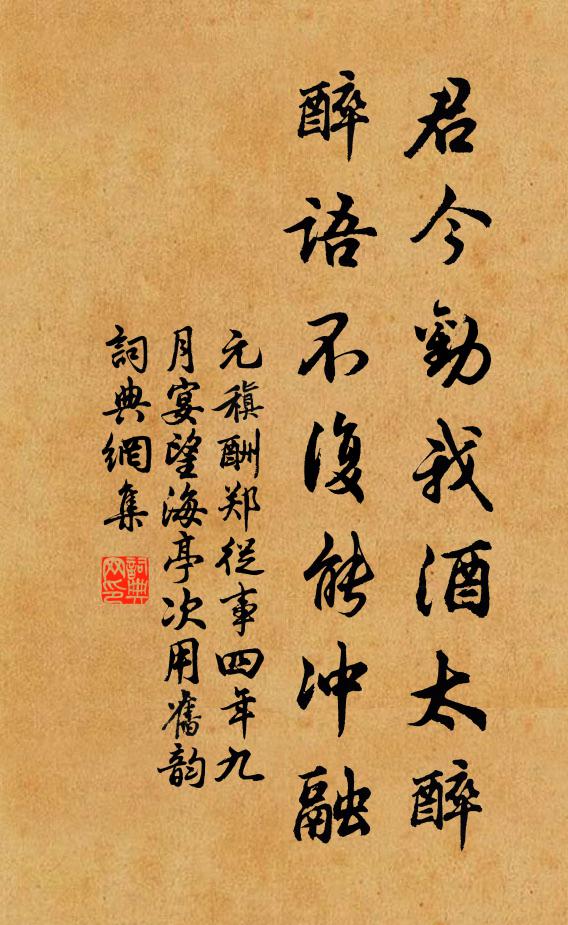 君今勸我酒太醉
醉語不復能冲融
元稹酬郑從事四年九
月宴望海亭次用舊韵
詞典網集
詞典
网印